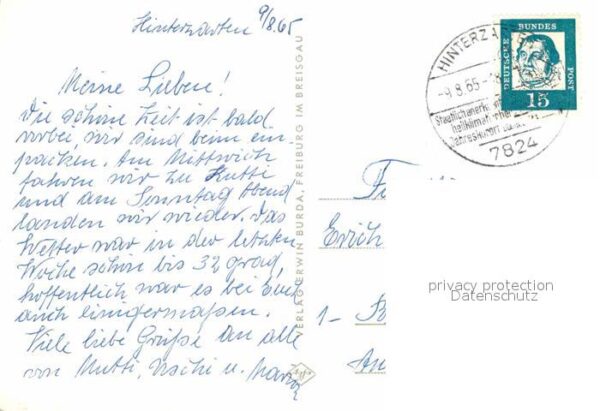 Hinterzarten 9/8.65
Meine Lieben!
Die schöne Zeit ist bald
vorbei, wir sind beim ein-
packen. Am Mittwoch
fahren wir zu
und am Sonntag Abend
landen wir wieder. Das
Wetter war in der letzten
Woche schön bis 32 grad,
hoffentlich war es bei Euch
auch einigermaßen.
Viele liebe Grüße an alle
von Mutti, Uschi u.
VERLAG ERWIN BURDA, FREIBURG IM BREISGAU
HINTERZA
-9.8.65-18
Staatlich anerk
heilklimatischer
Jahreskurort
7824
DEUTSCHE BUNDES POST
15
Erich
1-
privacy protection
Datenschutz